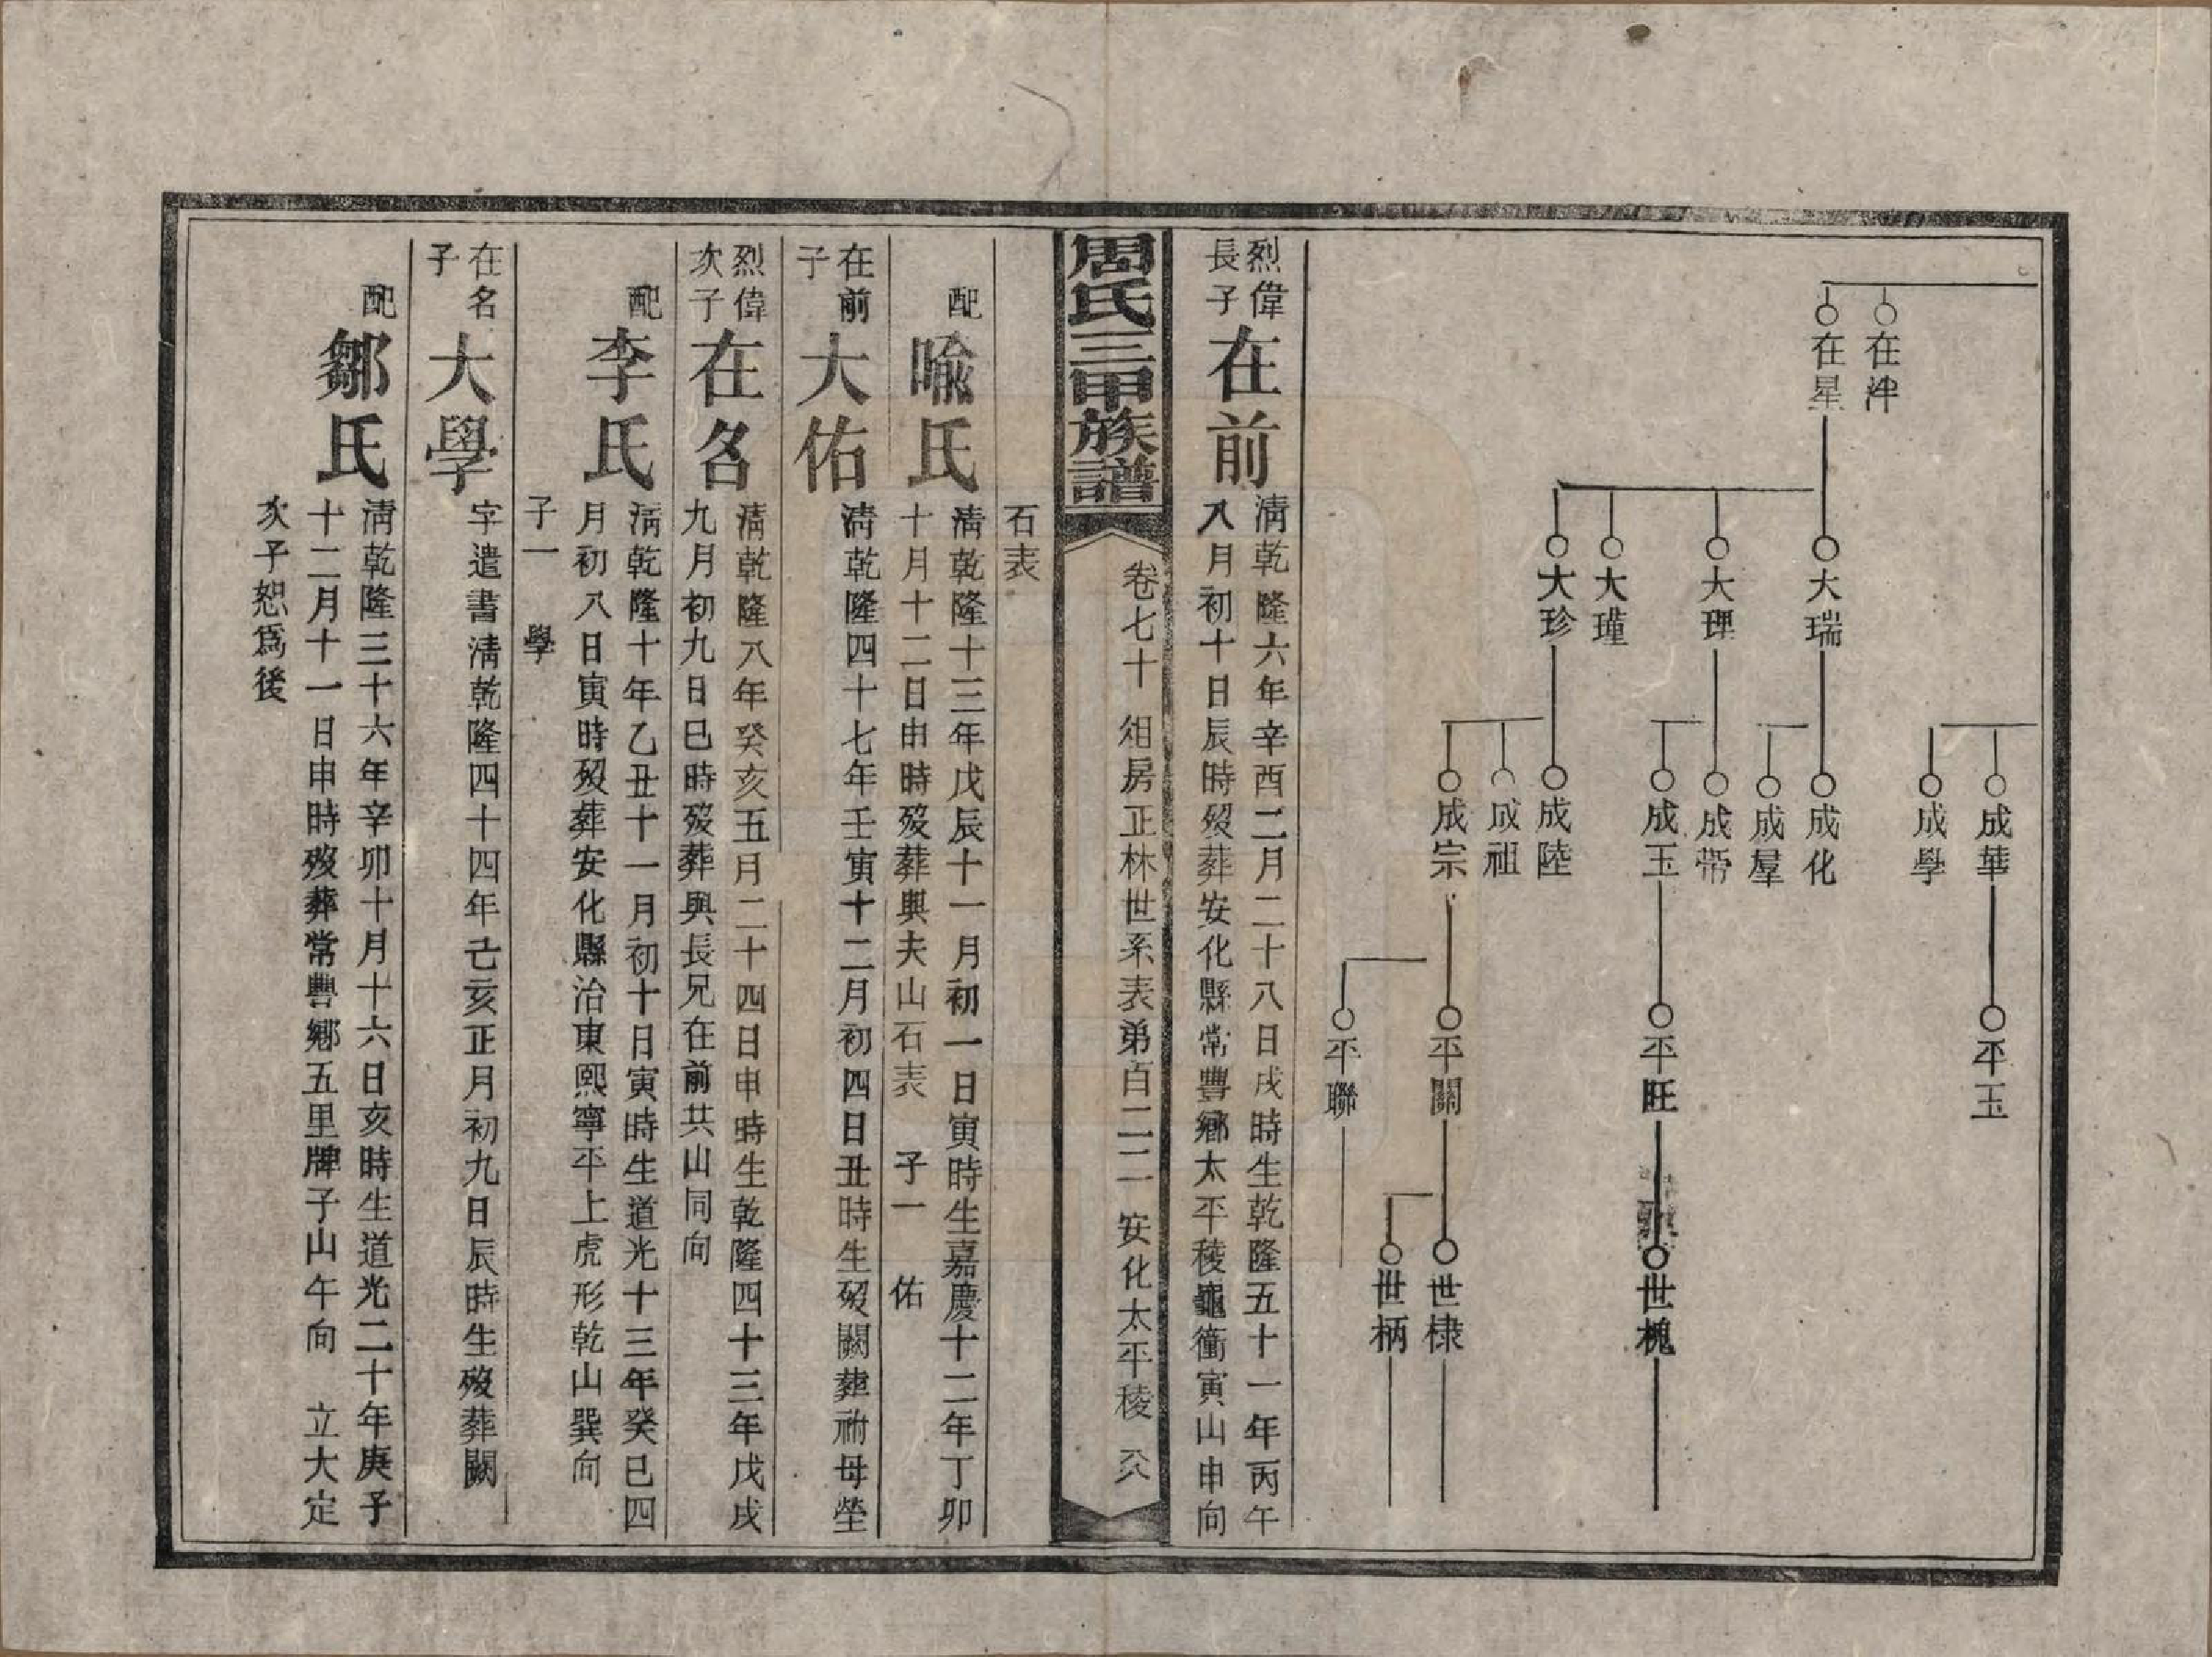 在泮
在星
大瑞
大理
大瑾
大珍
成華
成學
成化
成羣
成帶
成玉
成陸
成祖
成宗
平玉
平旺
平關
平聯
世槐
世棣
世柄
烈偉長子
在前
清乾隆六年辛酉二月二十八日戌時生乾隆五十一年丙午
八月初十日辰時歿葬安化縣常豐鄉太平稜龜衝寅山申向
周氏三甲族譜
卷七十 爼房正林世系表弟百二二 安化太平稜
石表
配
喩氏
清乾隆十三年戊辰十一月初一日寅時生嘉慶十二年丁卯
十月十二日申時歿葬與夫山石表 子一 佑
在前子
大佑
清乾隆四十七年壬寅十二月初四日丑時生歿闕葬祔母塋
烈偉次子
在名
清乾隆八年癸亥五月二十四日申時生乾隆四十三年戊戌
九月初九日巳時歿葬與長兄在前共山同向
配
李氏
清乾隆十年乙丑十一月初十日寅時生道光十三年癸巳四
月初八日寅時歿葬安化縣治東熙寧平上虎形乾山巽向
子一 學
在名子
大學
字遣書清乾隆四十四年己亥正月初九日辰時生歿葬闕
配
鄒氏
清乾隆三十六年辛卯十月十六日亥時生道光二十年庚子
十二月十一日申時歿葬常豐鄉五里牌子山午向 立大定
次子恕爲後